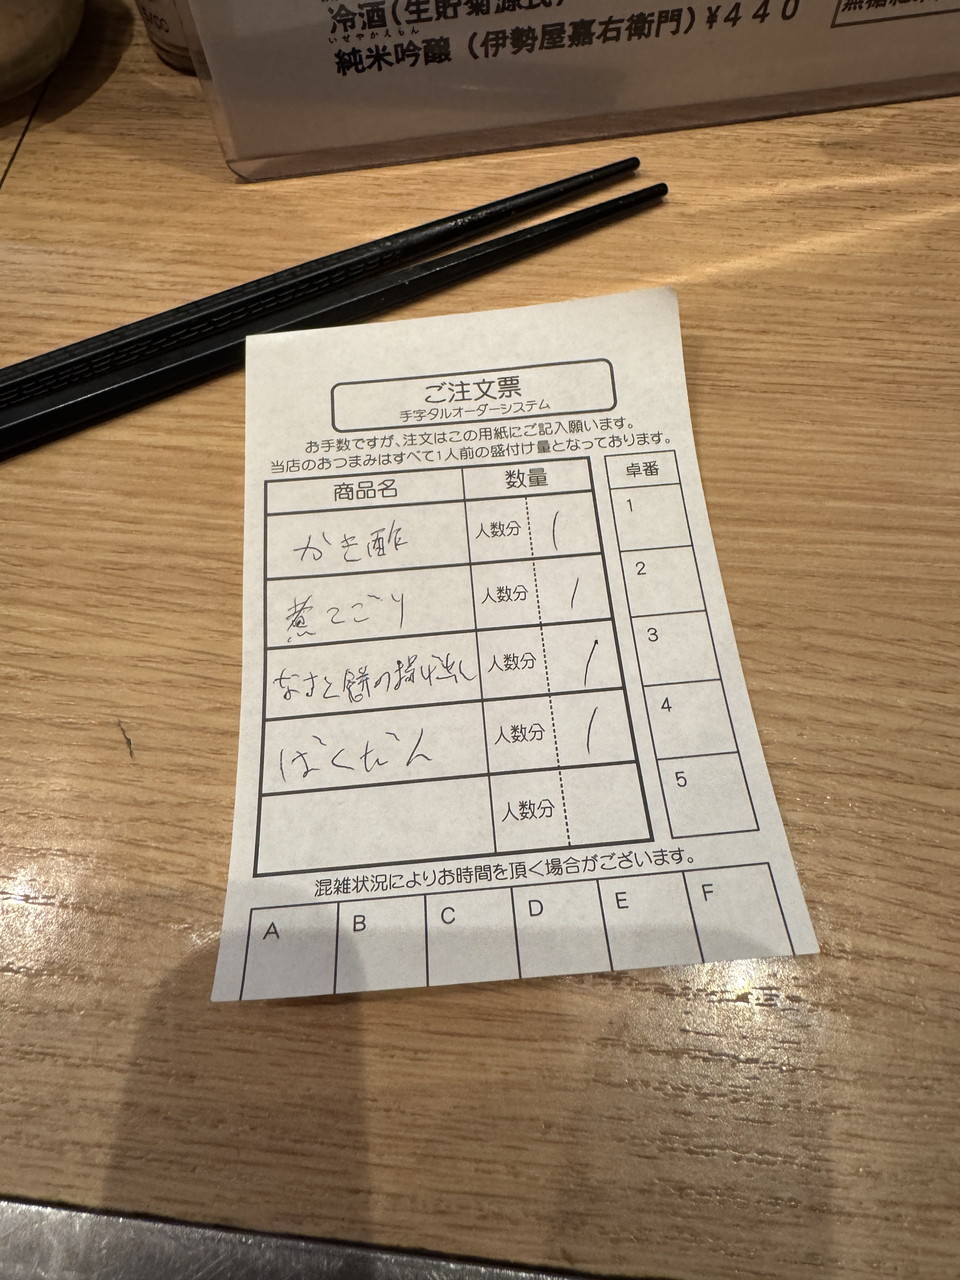 冷酒(生貯菊源氏)
いせやかえもん
純米吟醸(伊勢屋嘉右衛門)¥440
ご注文票
手字タルオーダーシステム
お手数ですが、注文はこの用紙にご記入願います。
当店のおつまみはすべて1人前の盛付け量となっております。
商品名 数量 卓番
かき酢 人数分 1
煮こごり 人数分 1
なすと餅の揚げ出し 人数分 1
ばくだん 人数分 1
人数分
1
2
3
4
5
混雑状況によりお時間を頂く場合がございます。
A B C D E F